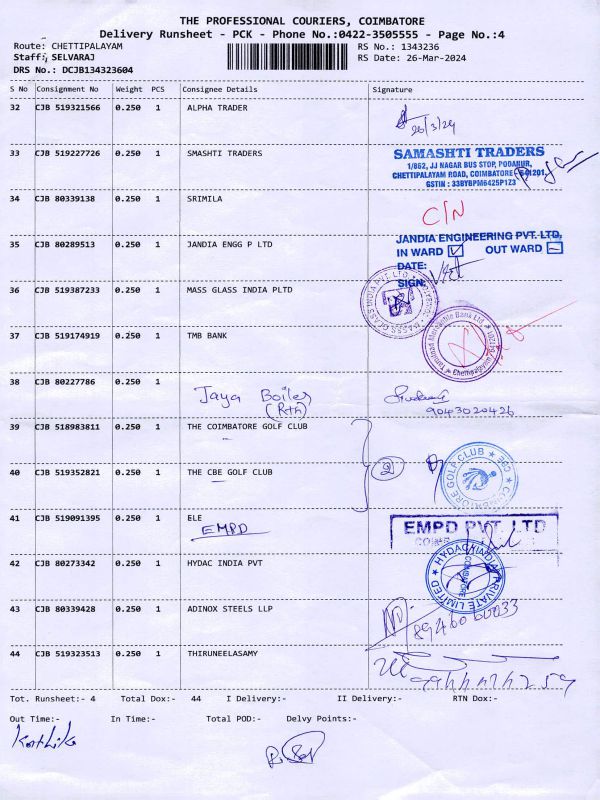 THE PROFESSIONAL COURIERS, COIMBATORE
Delivery Runsheet - PCK - Phone No.:0422-3505555 - Page No.:4
Route: CHETTIPALAYAM RS No.: 1343236
Staff: SELVARAJ RS Date: 26-Mar-2024
DRS No.: DCJB134323604
S No Consignment No Weight PCS Consignee Details Signature
32 CJB 519321566 0.250 1 ALPHA TRADER
26/3/24
33 CJB 519227726 0.250 1 SMASHTI TRADERS
SAMASHTI TRADERS
1/862, JJ NAGAR BUS STOP, PODANUR,
CHETTIPALAYAM ROAD, COIMBATORE 641201.
GSTIN : 33BYBPM6425P1Z3
34 CJB 80339138 0.250 1 SRIMILA
C/N
35 CJB 80289513 0.250 1 JANDIA ENGG P LTD
JANDIA ENGINEERING PVT. LTD.
IN WARD OUT WARD
DATE:
SIGN:
36 CJB 519387233 0.250 1 MASS GLASS INDIA PLTD
37 CJB 519174919 0.250 1 TMB BANK
Tamilnad Mercantile Bank Ltd.
Chettipalayam
38 CJB 80227786 0.250 1 Jaya Boiler
(Rtn)
9043020426
39 CJB 518983811 0.250 1 THE COIMBATORE GOLF CLUB
40 CJB 519352821 0.250 1 THE CBE GOLF CLUB
2
COIMBATORE GOLF CLUB
41 CJB 519091395 0.250 1 ELE
EMPD
EMPD PVT. LTD
42 CJB 80273342 0.250 1 HYDAC INDIA PVT
HYDAC INDIA PRIVATE LIMITED
43 CJB 80339428 0.250 1 ADINOX STEELS LLP
44 CJB 519323513 0.250 1 THIRUNEELASAMY
Tot. Runsheet:- 4 Total Dox:- 44 I Delivery:- II Delivery:- RTN Dox:-
Out Time:- In Time:- Total POD:- Delvy Points:-
Karthik